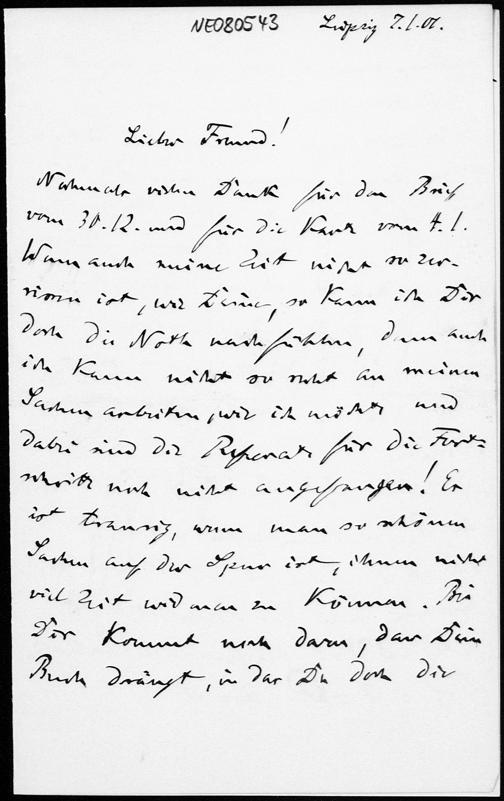 NE080543
Leipzig 7.1.01.
Lieber Freund!
Nochmals vielen Dank für den Brief
vom 30.12. und für die Karte vom 4.1.
Wenn auch meine Zeit nicht so zer-
rissen ist, wie Deine, so kann ich Dir
doch die Noth nachfühlen, denn auch
ich kann nicht so recht an meinen
Sachen arbeiten, wie ich möchte und
dabei sind die Referate für die Fort-
schritte noch nicht angefangen! Es
ist traurig, wenn man so schönen
Sachen auf der Spur ist, ihnen nicht
viel Zeit widmen zu können. Bei
Dir kommt noch dazu, dass Dein
Buch drängt, in das Du doch die